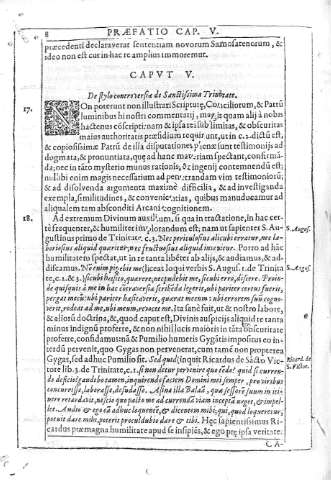 8 PRÆFATIO CAP. V.
præcedenti declaraverat sententiam novorum Samosatenorum, &
ideo non est cur in hac re amplius immoremur.
CAPVT V.
De stylo controversiæ de Sanctissima Trinitate.
17. NOn poterunt non illustrari Scripturæ, Conciliorum, & Patrũ
luminibus hi nostri commentarij, magis quam alij à nobis
hactenus cõscripti: nam & ipsa rei sublimitas, & obscuritas
maius authoritatis præsidium requirunt, ut in c. 2. dictũ est,
& copiosissimæ Patrũ de illa disputationes plenæ sunt testimonijs ad
dogmata, & pronuntiata, quæ ad hanc materiam spectant, confirmã-
da; nec in tãto mysterio munus rationis, & ingenij contemnendũ est;
nullibi enim magis necessarium ad penetrandam vim testimoniorũ;
& ad dissolvenda argumenta maximè difficilia, & ad investiganda
exempla, similitudines, & convenientias, quibus manuducamur ad
aliqualem tam absconditi Arcani cognitionem.
18. Ad extremum Divinum auxilium, si qua in tractatione, in hac cer-
tè frequenter, & humiliter invocandum est, nam ut sapienter S. Au- S. August.
gustinus primo de Trinitate c. 3. Nec periculosius alicubi erratur, nec la-
boriosius aliquid quæritur; nec fructuosius aliquid invenitur. Porro ad hãc
humilitatem spectat, ut in re tanta libẽter ab alijs, & audiamus, & ad-
discamus. Non enim pigebit me (liceat loqui verbis S. August. 1. de Trinita S. August.
te, c. 2. & 3.) sicubi hæsito, quærere, nec pudebit me, sicubi erro, discere. Proin-
de quisquis
pergat mecũ: ubi pariter hæsitaverit, quærat mecum: ubi errorem suũ cogno-
verit, redeat ad me, ubi meum, revocet me. Ita sanè fuit, ut & nostro labore,
& aliorũ doctrina, &, quod caput est, Divinis auspicijs aliquid re tanta
minus indignũ proferre, & non nihil lucis maioris in tãta obscuritate
proferre, confidamus: nã & Pumilio humeris Gygãtis impositus eo in-
terdũ pervenit, quo Gygas non pervenerat, cum tamẽ non propterea
Gygas, sed adhuc Pumilio sit. Sed quid? inquit Ricardus de Sãcto Vic- Ricard. de
tore lib. 3. de Trinitate, c. 1. si non detur pervenire quò tẽdo? quid si curren- S. Victor.
do deficio? gaudebo tamen, inquirendo faciem Domini mei semper, pro viribus
cucurrisse, laborasse, desudasse. Asina illa Balaã, quæ sessorẽ suum in iti-
nere retardavit, nescio quo pacto me ad currendũ viam inceptã urget, & impel-
let. Audio & ego eã adhuc loquentẽ, & dicentem mihi; qui, quod loqueretur,
potuit dare mihi, poterit proculdubio dare & tibi. Hęc sapientissimus Ri-
cardus pro magna humilitate apud se inspiës, & ego præ ipsa veritate.
CA-